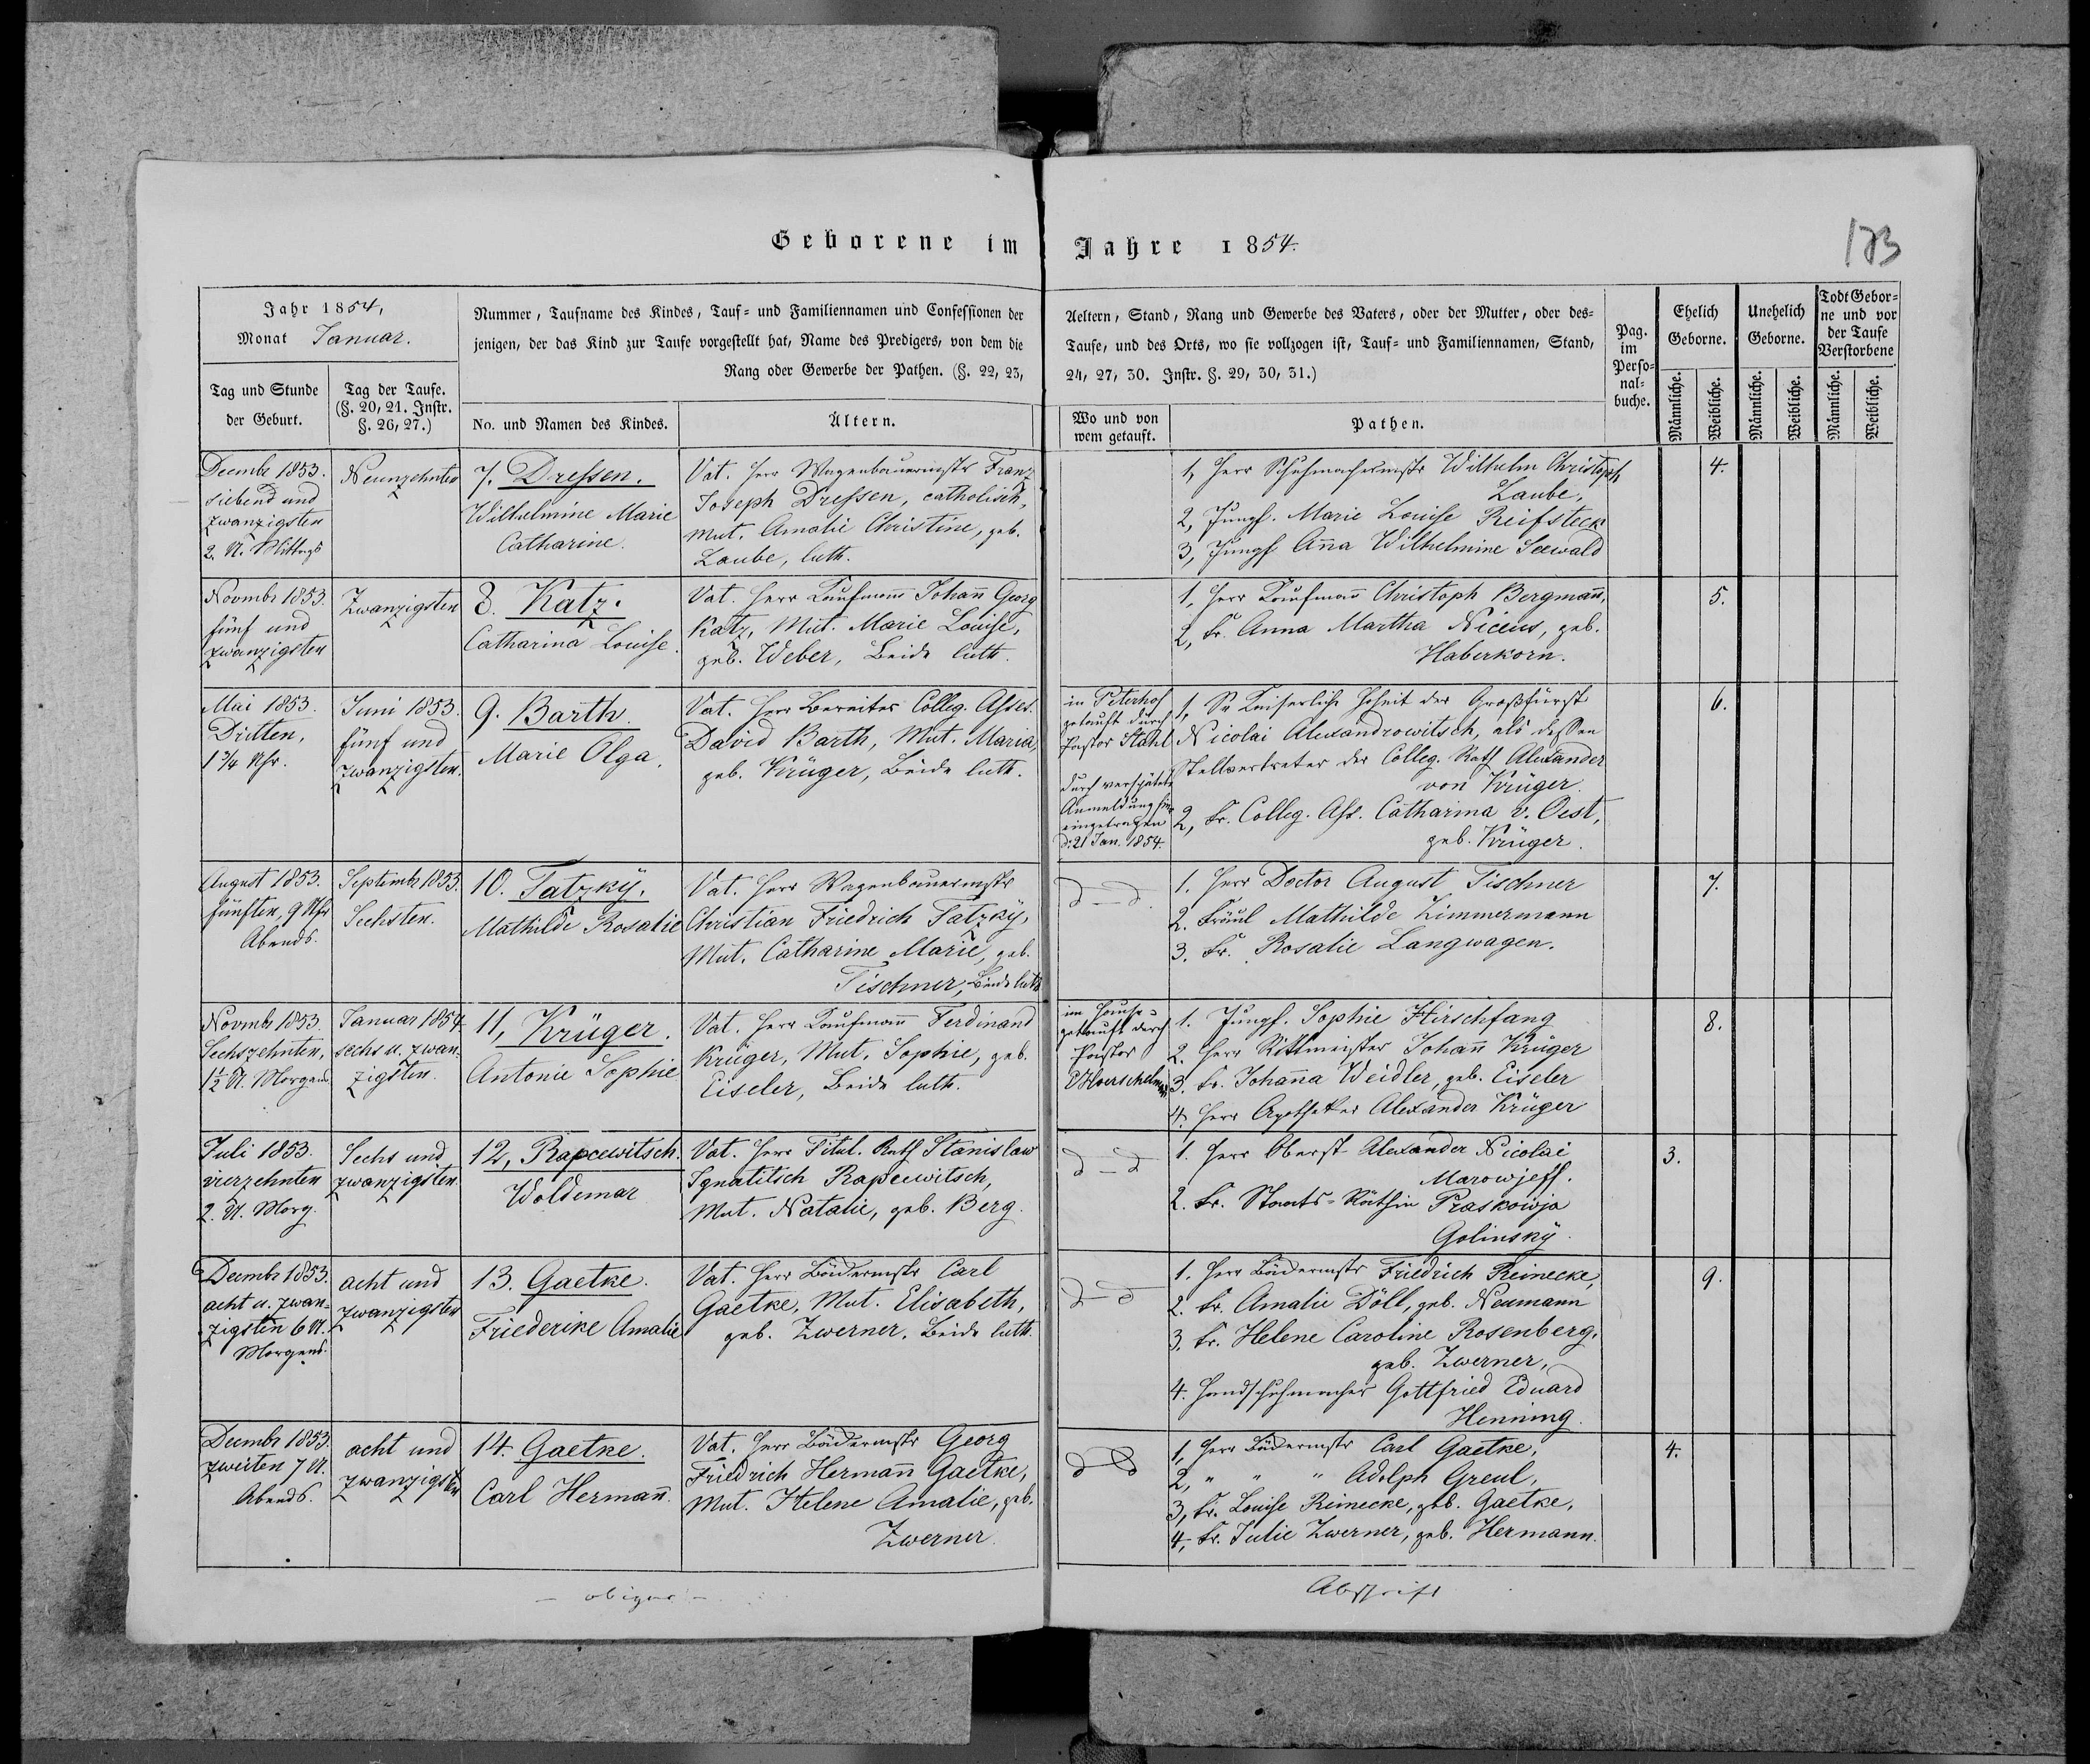 Geborene im Jahre 1854.
173
Jahr 1854,
Monat Januar.
Tag und Stunde
der Geburt.
Tag der Taufe.
(§. 20, 21. Instr.
§. 26, 27.)
Nummer, Taufname des Kindes, Tauf- und Familiennamen und Confessionen der
jenigen, der das Kind zur Taufe vorgestellt hat, Name des Predigers, von dem die
Rang oder Gewerbe der Pathen. (§. 22, 23,
No. und Namen des Kindes.
Ältern.
Aeltern, Stand, Rang und Gewerbe des Vaters, oder der Mutter, oder des-
Taufe, und des Orts, wo sie vollzogen ist, Tauf- und Familiennamen, Stand,
24, 27, 30. Instr. §. 29, 30, 31.)
Wo und von
wem getauft.
Pathen.
Pag.
im
Perso-
nal-
buche.
Ehelich
Geborne.
Unehelich
Geborne.
Todt Gebor-
ne und vor
der Taufe
Verstorbene
Männliche.
Weibliche.
Männliche.
Weibliche.
Männliche.
Weibliche.
Decmbr 1853.
siebend und
zwanzigsten
2. U. Mittags
Neunzehnten
7. Dressen.
Wilhelmine Marie
Catharine.
Vat. Herr Wagenbauermstr Franz
Joseph Dressen, catholisch,
Mut. Amalie Christine, geb.
Laube, luth.
1, Herr Schuhmachermstr Wilhelm Christoph
Laube,
2, Jungf. Marie Louise Reifsteck
3, Jungf Aña Wilhelmine Seewald
4.
Novmbr 1853.
fünf und
zwanzigsten
Zwanzigsten
8. Katz.
Catharina Louise.
Vat. Herr Kaufmann Johañ Georg
Katz, Mut. Marie Louise,
geb. Weber, Beide luth.
1, Herr Kaufmañ Christoph Bergmañ,
2, Fr. Anna Martha Niceus, geb.
Haberkorn.
5.
Mai 1853.
Dritten,
1 3/4 Uhr.
Juni 1853.
fünf und
zwanzigsten.
9. Barth.
Marie Olga.
Vat. Herr Bereiter Colleg. Asses.
David Barth, Mut. Maria,
geb. Krüger, Beide luth.
in Peterhof
getauft durch
Pastor Stahl
durch verspätete
Anmeldung hier
eingetragen
d. 21 Jan. 1854.
1, Sr Kaiserliche Hoheit der Großfürst
Nicolai Alexandrowitsch, als dessen
Stellvertreter der Colleg. Rath Alexander
von Krüger.
2, Fr. Colleg. Ass. Catharina v. Oest,
geb. Krüger.
6.
August 1853.
fünften, 9 Uhr
Abends.
Septembr 1853.
Sechsten.
10. Tatzky.
Mathilde Rosalie
Vat. Herr Wagenbauermstr
Christian Friedrich Tatzky,
Mut. Catharine Marie, geb.
Tischner, Beide luth
d–d.
1. Herr Doctor August Tischner
2. Fräul Mathilde Zimmermann
3. Fr. Rosalie Langwagen.
7.
Novmbr 1853.
Sechszehnten,
1 1/2 U. Morgens
Januar 1854
sechs u. zwan-
zigsten.
11, Krüger.
Antonie Sophie
Vat. Herr Kaufmann Ferdinand
Krüger, Mut. Sophie, geb.
Eiseler, Beide luth.
im Hause
getauft durch
Pastor
1. Jungf. Sophie Hirschfang
2. Herr Rittmeister Johañ Krüger
3. Fr. Johaña Weidler, geb. Eiseler
4. Herr Apotheker Alexander Krüger
8.
Juli 1853.
vierzehnten
2. U. Morg.
Sechs und
zwanzigsten
12, Rapcewitsch.
Woldemar
Vat. Herr Titul. Rath Stanislaw
Ignatitsch Rapcewitsch,
Mut. Natalie, geb. Berg.
d–d
1. Herr Oberst Alexander Nicolai
Marowjeff.
2. Fr. Staats-Räthin Praskowja
Golinsky.
3.
Decmbr 1853.
acht u. zwan-
zigsten 6 U.
Morgens.
acht und
zwanzigsten
13. Gaetke.
Friederike Amalie
Vat. Herr Bäckermstr Carl
Gaetke, Mut. Elisabeth,
geb. Zwerner. Beide luth.
d–d
1. Herr Bäckermstr Friedrich Reinecke,
2. Fr. Amalie Döll, geb. Neumann
3. Fr. Helene Caroline Rosenberg,
geb. Zwerner,
4. Handschuhmacher Gottfried Eduard
Henning.
9.
Decmbr 1853.
zweiten 7 U.
Abends.
acht und
zwanzigsten
14. Gaetke.
Carl Hermañ.
Vat. Herr Bäckermstr Georg
Friedrich Hermañ Gaetke,
Mut. Helene Amalie, geb.
Zwerner.
d–d
1, Herr Bäckermstr Carl Gaetke,
2, " " " Adolph Greul,
3, Fr. Louise Reinecke, geb. Gaetke,
4, Fr. Julie Zwerner, geb. Hermann.
4.
Abschrift